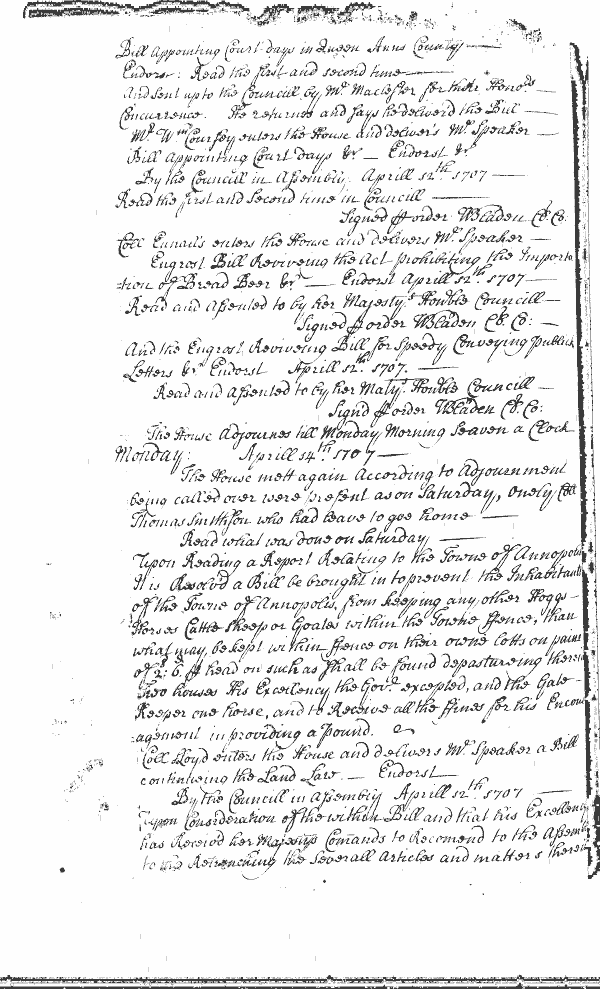 Bill Appointing Court days in Queen Anns County
Endorst: Read the first and second time
And sent up to the Councill by Mr Maclester for their Honors
Concurrence. He returnes and says he deliverd the Bill
Mr Wm Coursey enters the House and delivers Mr Speaker
Bill Appointing Court days &c — Endorst &c
By the Councill in Assembly Aprill 12th 1707
Read the first and second time in Councill
Signed p order WBladen Cl. Co:
Coll Ennalls enters the House and delivers Mr Speaker
Engrost Bill Reviveing the Act prohibiting the Importa
tion of Bread Beer &c — Endorst Aprill 12th 1707
Read and Assented to by her Majestys Honble Councill
Signed p order WBladen Cl. Co:
And the Engrost Reviveing Bill for Speedy Conveying publick
Letters &c Endorst Aprill 12th 1707.
Read and Assented to by her Matys Honble Councill
Signd p order WBladen Cl. Co:
The House Adjournes till Monday Morning Seaven a Clock
Monday: Aprill 14th 1707
The House mett again According to Adjournment
being called over were present as on Saturday, onely Coll
Thomas Smithson who had leave to goe home
Read what was done on Saturday
Upon Reading a Report Relating to the Towne of Annopolis
It is Resolved a Bill be brought in to prevent the Inhabitants
of the Towne of Annopolis, from keeping any other Hoggs
Horses Cattle Sheep or Goates within the Towne ffence, than
what may be kept within ffence on their owne Lotts on paine
of 2: 6 p head on such as shall be found depastureing therein
two houses His Excellency the Govr excepted, and the Gate
Keeper one horse, and to Receive all the ffines for his Encour
agement in providing a pound.
Coll Lloyd enters the House and delivers Mr Speaker a Bill
continueing the Land Law — Endorst
By the Councill in Assembly Aprill 12th 1707
Upon Consideration of the within Bill and that his Excellency
has Received her Majestys Comands to Recomend to the Assembly
to the Retrenching the severall Articles and matters therein